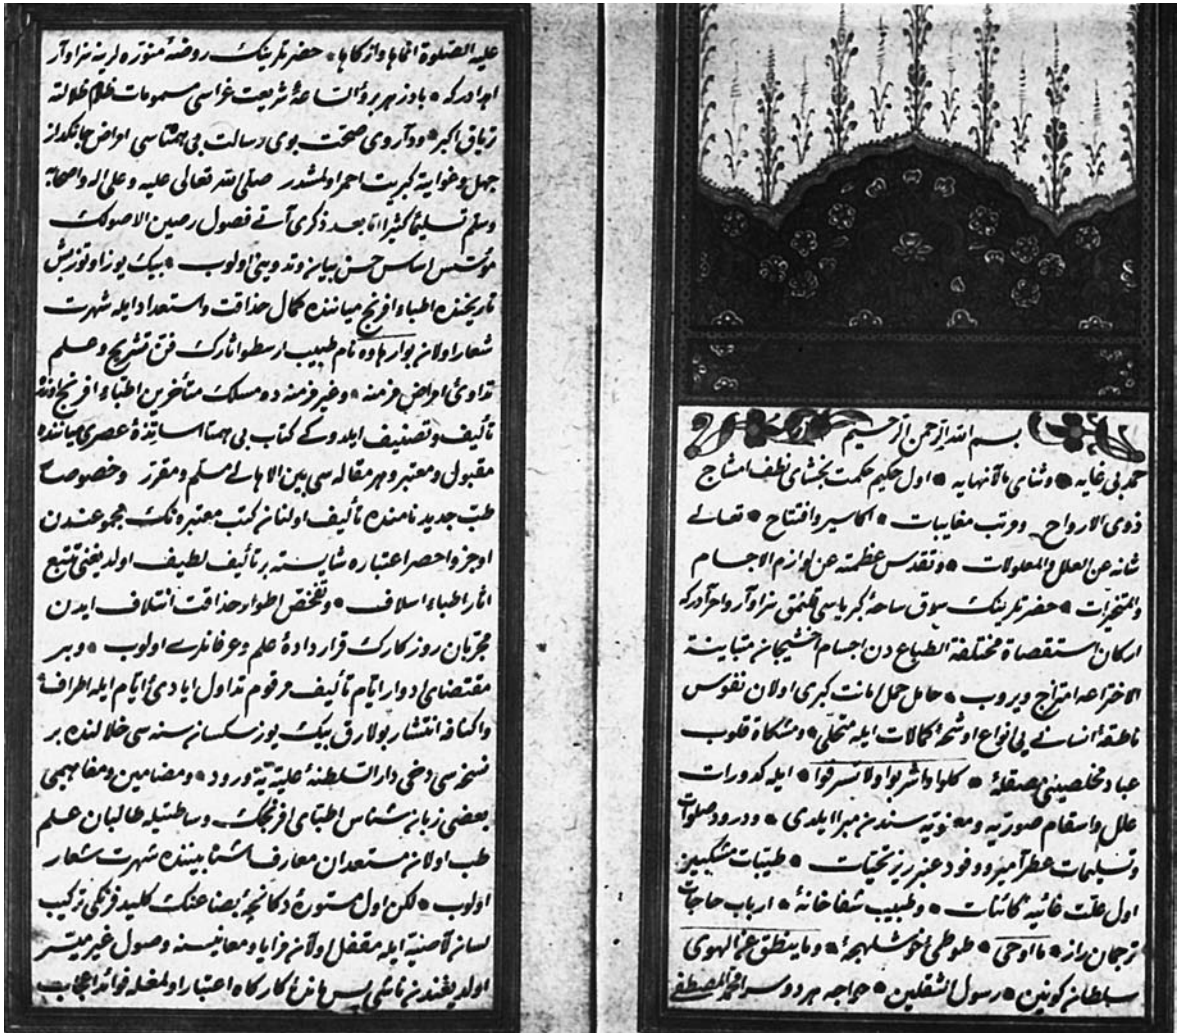 بسم الله الرحمن الرحيم
حمد بی غایه و ثنای مالانهایه اول حکیم حکمت بخشای نطف امشاج
ذوی الارواح و مرتب مغایبات اکاسیر و افتتاح تعالی
شانه عن العلل والمعلولات و تقدس عظمته عن لوازم الاجسام
والمتحیزات حضرتلرینك ساحهٔ کبریاسی سزاوار واحرادر که
ارکان استقصاة مختلفة الطباع دن اجسام متباینة
الاختراعه امتزاج ویروب حامل حمل امانت کبری اولان نفوس
ناطقهٔ انسانی یی انواع کمالات ایله متحلی و مشکاة قلوب
عباد مخلصینی مصقلهٔ کلوا واشربوا ولا تسرفوا ایله کدورات
علل و اسقام صوریه و معنویه سندن مبرا ایلدی و درود صلوات
و تسلیمات عطرآمیز و وفود عنبرریز تحیات طیبات مشکبیز
اول علت غائیهٔ کائنات و طبیب شفاخانهٔ ارباب حاجات
ترجمان راز ما اوحی طوطی خوشلهجهٔ وما ینطق عن الهوی
سلطان کونین رسول الثقلین خواجه هر دو سرا محمد المصطفی
علیه الصلوة انماها و ازکاها حضرتلرینك روضهٔ منوره لرینه سزاوار
احرادر که شریعت غراسی مسمومات ظلام ضلالته
تریاق اکبر و داروی صحت بوی رسالت بی همتاسی امراض جانکداز
جهل و غوایته کبریت احمر اولمشدر صلی الله تعالی علیه و علی اله واصحابه
وسلم تسلیما کثیرا اما بعد ذکری آتی فصول رصین الاصولك
مؤسس اساس حسن بیان و تدوینی اولوب بیك یوز اوتوز بش
تاریخنده اطباء افرنج میاننده کمال حذاقت و استعداد ایله شهرت
شعار اولان بوارهاوه نام طبیب ارسطو اثارك فن تشریح و علم
تداوئ امراض مزمنه و غیر مزمنه ده مسلك متأخرین اطباء افرنج اوزره
تألیف و تصنیف ایلدوکی کتاب بی همتا اساتذهٔ عصری میاننده
مقبول و معتبر و هر مقاله سی بین الاهالی مسلم و مقرر و خصوصا
طب جدید نامنده تألیف اولنان کتب معتبره نك مجموعندن
اوجز و احصر اعتباره شایسته بر تألیف لطیف اولدیغنی تتبع
اثار اطباء اسلاف و تفحص اطوار حذاقت ائتلاف ایدن
مجربان روزکارك قرار دادهٔ علم و عرفانلری اولوب و بر
مقتضای ادوار ایام تألیف مرقوم تداول ایادئ ایام ایله اطراف
و اکنافه انتشار بولارق بیك یوز سکسان سنه سی خلالنده بر
نسخه سی دخی دار السلطنهٔ علیه یه ورود و مضامین و مفاهیمی
بعضی زبان شناس اطبای افرنجك وساطتیله طالبان علم
طب اولان مستعدان معارف اشنا بیننده شهرت شعار
اولوب لکن اول مستورهٔ دکانچهٔ بضاعتك کلید فرنکی ترکیب
لسان لاصنیه ایله مقفل اولان مزایا و معانیسنه وصول غیر میسر
اولدیغندن ناشی پس کارکاه اعتبار اولمغله فوائد اعجاب